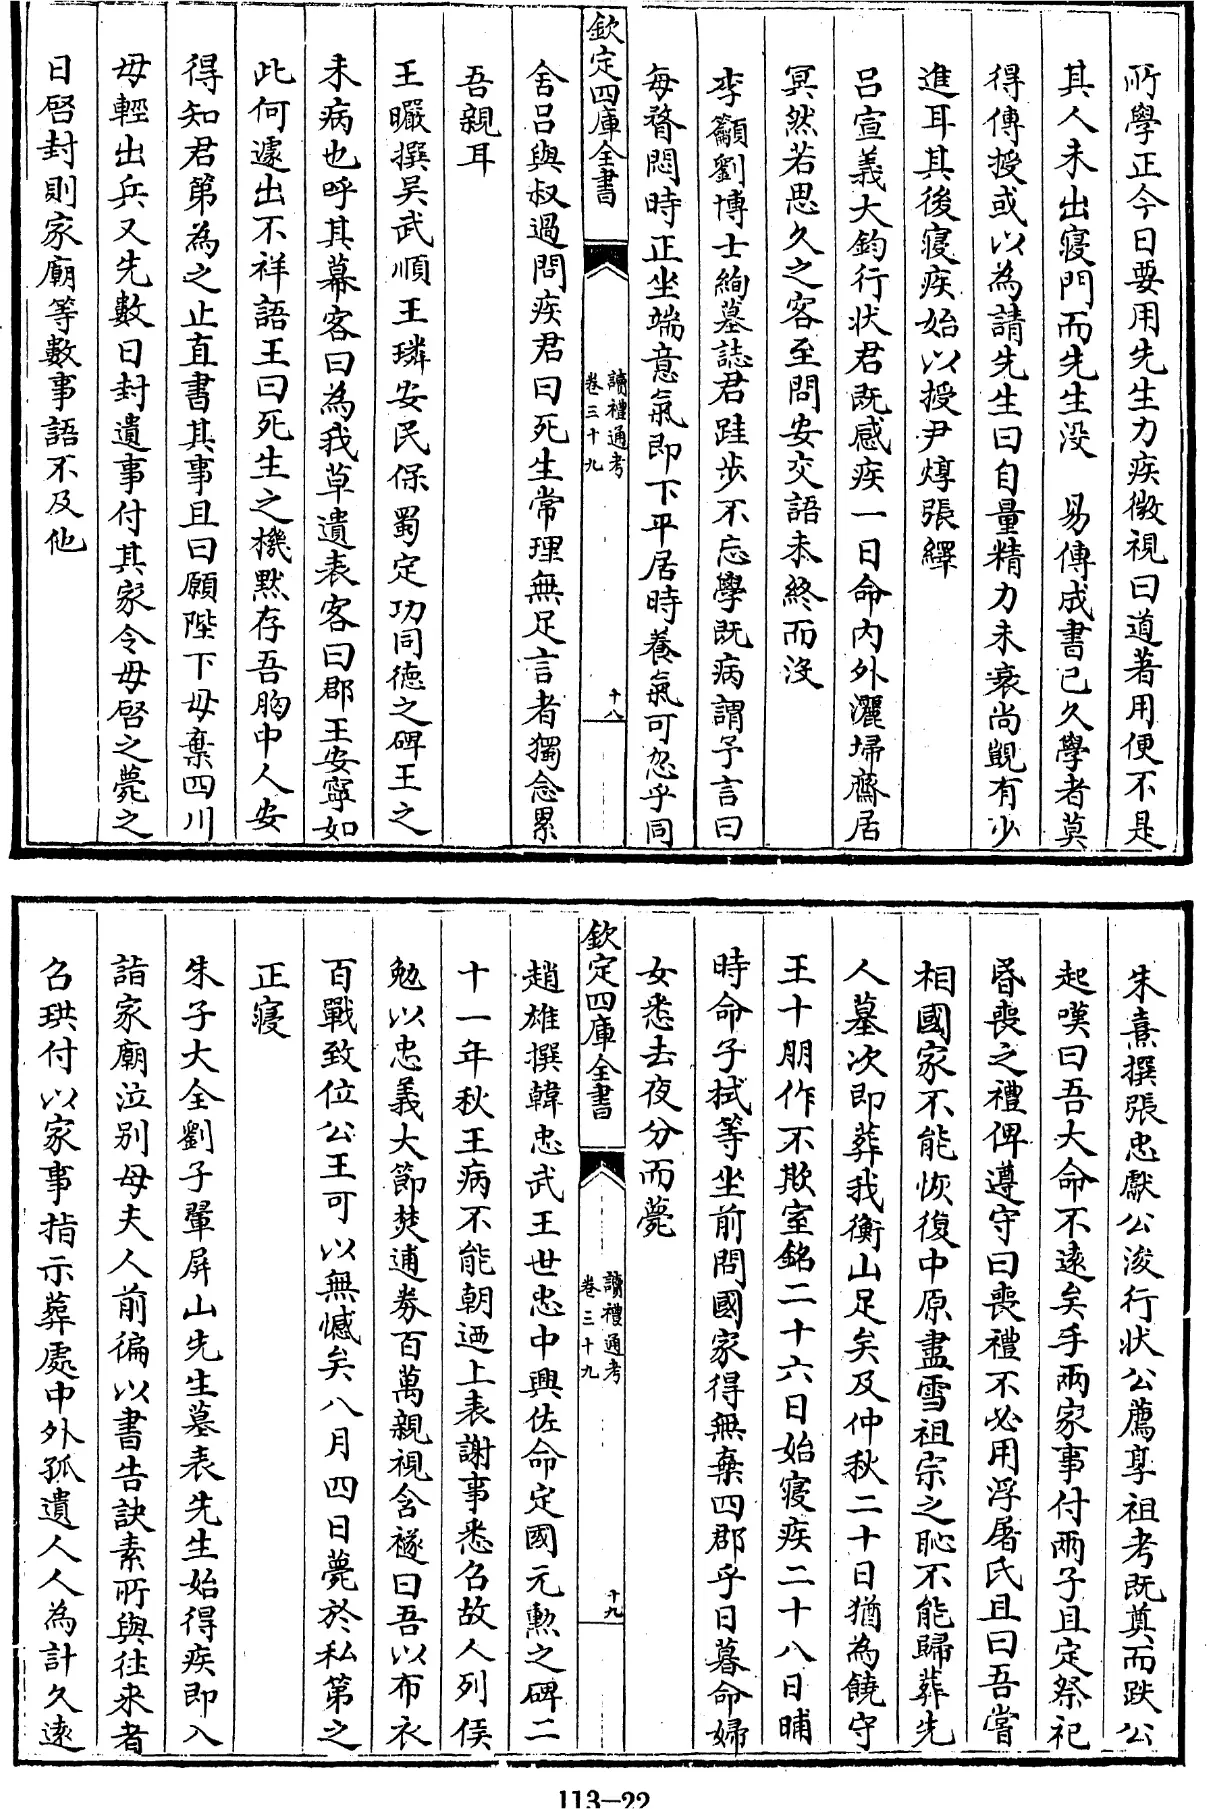 所學正今日要用先生力疾微視曰道著用便不是
其人未出寢門而先生没　易傳成書已久學者莫
得傳授或以為請先生曰自量精力未衰尚覬有少
進耳其後寢疾始以授尹焞張繹
呂宣義大鈞行狀君既感疾一日命內外灑埽齋居
冥然若思久之客至問安交語未終而沒
李籲劉博士絢墓誌君跬步不忘學既病謂予言曰
每瞀悶時正坐端意氣即下平居時養氣可忽乎同
欽定四庫全書
讀禮通考
卷三十九
十八
舍呂與叔過問疾君曰死生常理無足言者獨念累
吾親耳
王曮撰吴武順王璘安民保蜀定功同德之碑王之
未病也呼其幕客曰為我草遺表客曰郡王安寧如
此何遽出不祥語王曰死生之機默存吾胸中人安
得知君第為之止直書其事且曰願陛下毋棄四川
毋輕出兵又先數日封遺事付其家令毋啓之薨之
日啓封則家廟等數事語不及他
朱熹撰張忠獻公浚行狀公薦享祖考既奠而跌公
起嘆曰吾大命不遠矣手兩家事付兩子且定祭祀
昏喪之禮俾遵守曰喪禮不必用浮屠氏且曰吾嘗
相國家不能恢復中原盡雪祖宗之恥不能歸葬先
人墓次即葬我衡山足矣及仲秋二十日猶為饒守
王十朋作不欺室銘二十六日始寢疾二十八日晡
時命子栻等坐前問國家得無棄四郡乎日暮命婦
女悉去夜分而薨
欽定四庫全書
讀禮通考
卷三十九
十九
趙雄撰韓忠武王世忠中興佐命定國元勲之碑二
十一年秋王病不能朝迺上表謝事悉召故人列侯
勉以忠義大節焚逋券百萬親視含襚曰吾以布衣
百戰致位公王可以無憾矣八月四日薨於私第之
正寢
朱子大全劉子翬屏山先生墓表先生始得疾即入
詣家廟泣别母夫人前徧以書告訣素所與往來者
召珙付以家事指示葬處中外孤遺人人為計久遠
113—22